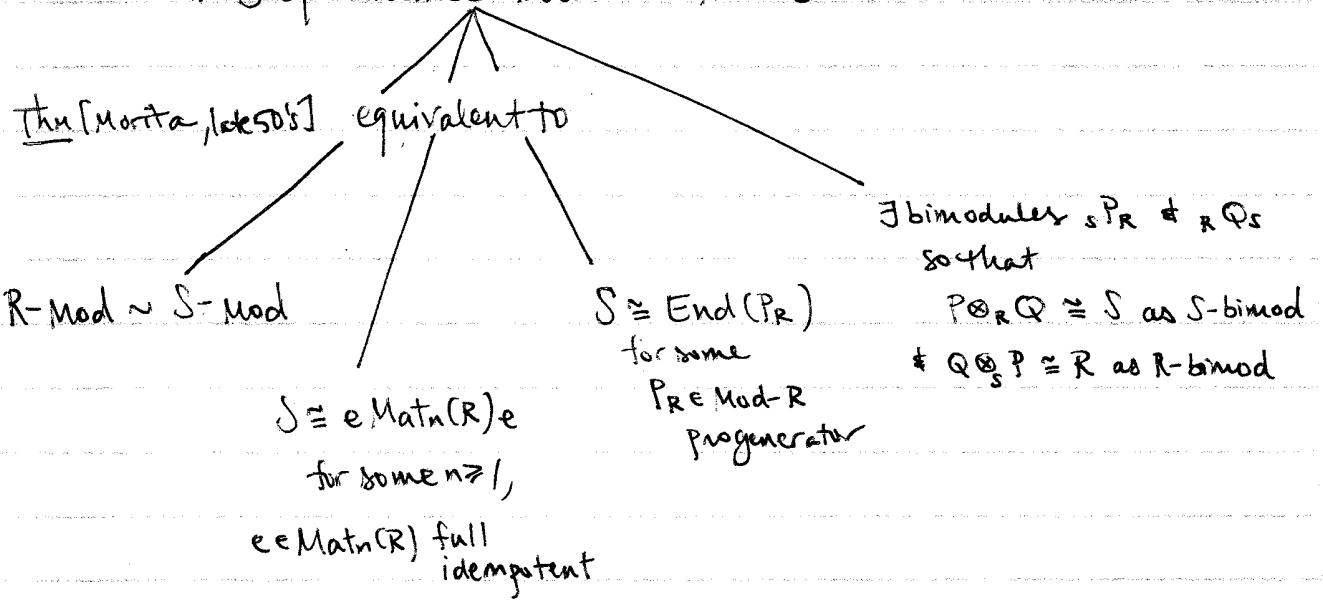 Thm [Morita, late 50's] equivalent to
R-Mod ~ S-Mod
S ≅ e Matn(R)e
for some n≥1,
e∈Matn(R) full
idempotent
S ≅ End(P_R)
for some
P_R ∈ Mod-R
progenerator
∃ bimodules _SP_R & _RQ_S
so that
P⊗_R Q ≅ S as S-bimod
& Q⊗_S P ≅ R as R-bimod